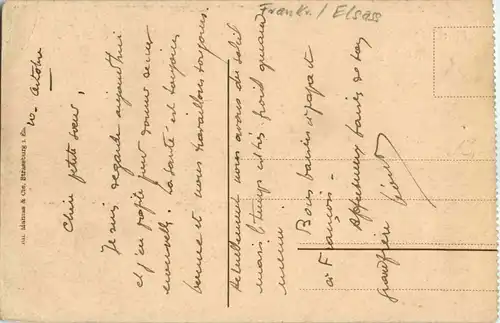 Frankr. / Elsass
10 - Octobre
Chère petite sœur,
Je suis de garde aujourd'hui
et j'en profite pour donner de mes
nouvelles. La santé est toujours
bonne et nous travaillons toujours.
Actuellement nous avons du soleil
mais le temps est très froid quand
même
Bons baisers à papa et
à François -
Affectueux baisers de ton
grand frère
Als. Mathus & Cie, Strassburg i. Els.